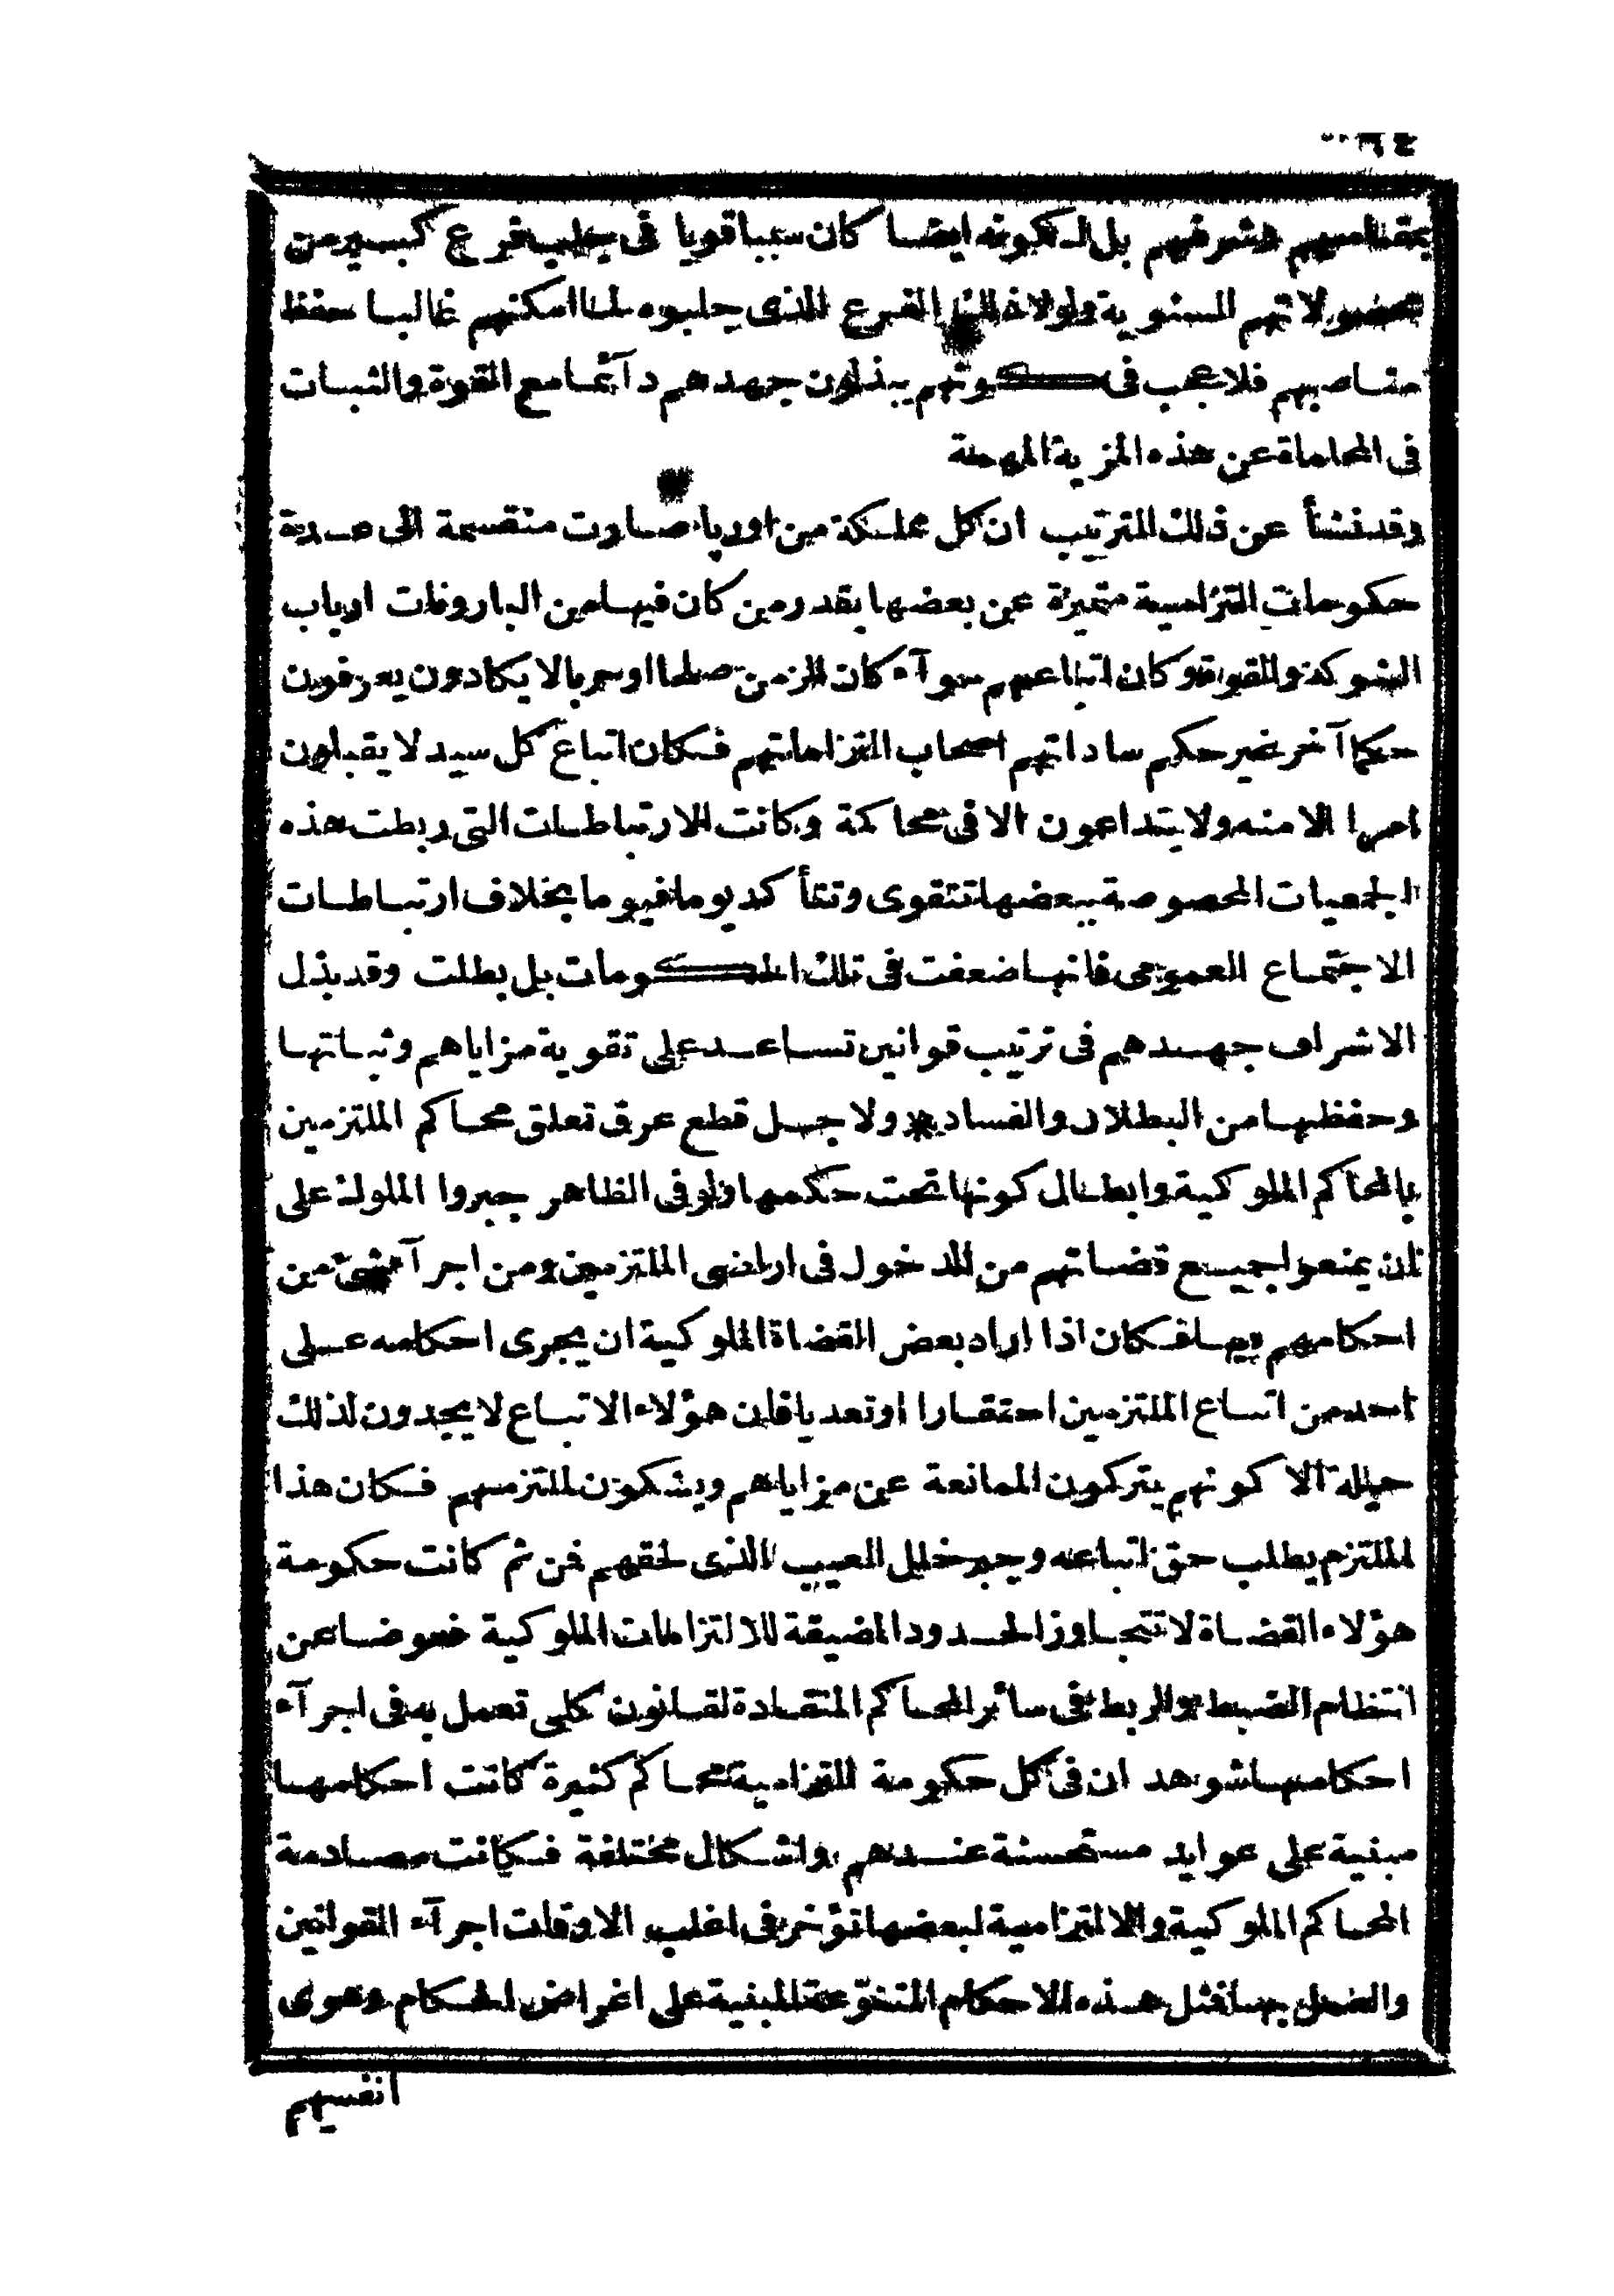 بمقامهم وشرفهم بل لكونه ايضا كان سببا قويا فى جلب فرع كبير من
محصولاتهم السنوية ولولا ذلك الفرع الذى جلبوه لما امكنهم غالبا حفظ
مناصبهم فلا عجب فى كونهم يبذلون جهدهم دآئما مع القوة والثبات
فى المحاماة عن هذه المزية المهمة
وقد نشأ عن ذلك الترتيب ان كل مملكة من اوربا صارت منقسمة الى عدة
حكومات التزامية متميزة عن بعضها بقدر من كان فيها من البارونات ارباب
الشوكة والقوة وكان اتباعهم سوآء كان الزمن صلحا او حربا لا يكادون يعرفون
حكما آخر غير حكم ساداتهم اصحاب التزاماتهم فكان اتباع كل سيد لا يقبلون
امرا الا منه ولا يتداعون الا فى محاكمه وكانت الارتباطات التى ربطت هذه
الجمعيات المخصوصة ببعضها تتقوى وتتأكد يوما فيوما بخلاف ارتباطات
الاجتماع العمومى فانها ضعفت فى تلك الحكومات بل بطلت وقد بذل
الاشراف جهدهم فى ترتيب قوانين تساعد على تقوية مزاياهم وثباتها
وحفظها من البطلان والفساد * ولاجل قطع عرق تعلق محاكم الملتزمين
بالمحاكم الملوكية وابطال كونها تحت حكمها ولو فى الظاهر جبروا الملوك على
ان يمنعوا جميع قضاتهم من الدخول فى اراضى الملتزمين ومن اجرآء شئ من
احكامهم بها فكان اذا اراد بعض القضاة الملوكية ان يجرى احكامه على
احد من اتباع الملتزمين احتقارا او تعديا فان هؤلاء الاتباع لا يجدون لذلك
حيلة الا كونهم يتركون الممانعة عن مزاياهم ويشكون لملتزمهم فكان هذا
الملتزم يطلب حق اتباعه وجبر خلل العيب الذى لحقهم فمن ثم كانت حكومة
هؤلاء القضاة لا تتجاوز الحدود المضيقة للالتزامات الملوكية خصوصا عن
انتظام الضبط والربط فى سائر المحاكم المنقادة لقانون كلى تعمل به فى اجرآء
احكامها شوهد ان فى كل حكومة التزامية محاكم كثيرة كانت احكامها
مبنية على عوايد مستحسنة عندهم واشكال مختلفة فكانت مصادمة
المحاكم الملوكية والالتزامية لبعضها تؤخر فى اغلب الاوقات اجرآء القوانين
والعمل بها فمثل هذه الاحكام المتنوّعة المبنية على اغراض الحكام وهوى
انفسهم